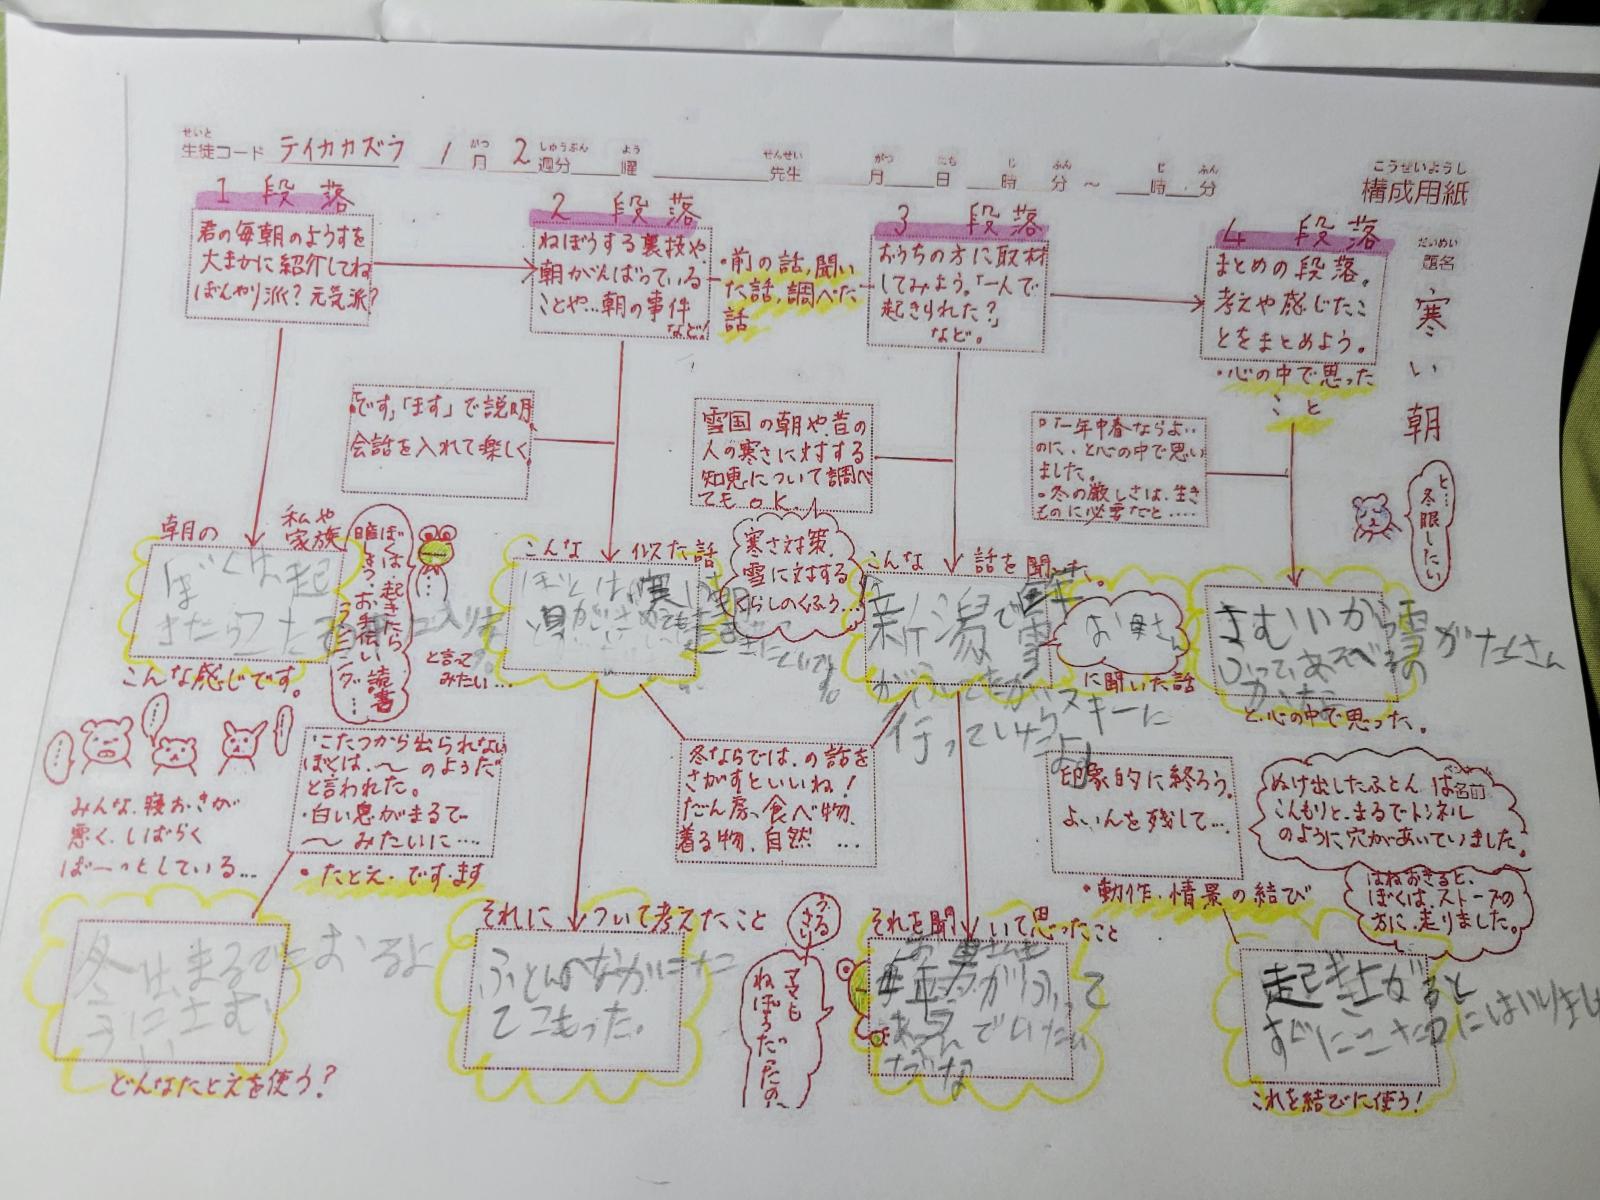 せいと
生徒コード テイカカズラ 1月 2週分 曜 先生 月 日 時 分 ～ 時 分
がつ しゅうぶん よう せんせい がつ にち じ ふん じ ふん
こうせいようし
構成用紙
だいめい
題名
寒い朝
1 段落
君の毎朝のようすを
大まかに紹介してね
ぼんやり派?元気派?
2 段落
ねぼうする裏技や、
朝がんばっている
ことや…朝の事件
など!
・前の話、聞い
た話、調べた
話
3 段落
おうちの方に取材
してみよう。「一人で
起きられた?」
など。
4 段落
まとめの段落。
考えや感じたこ
とをまとめよう。
・心の中で思った
こと
「です」「ます」で説明
会話を入れて楽しく。
雪国の朝や昔の
人の寒さに対する
知恵について調べ
てもOK!
「一年中春ならよい
のに、と心の中で思い
ました。
・冬の厳しさは、生き
ものに必要だと……
と…
冬眠したい
朝の
私や
家族
ぼくは起
きたらこたつ
こんな感じです。
ぼくは、起きたら
お手伝い
読書
と言って
みたい…
こんな 似た話
寒さ対策、
雪に対する
くらしのくふう…
こんな 話を聞いた。
新潟で
雪
がふってたから
スキーに
行っていたらしい
お母さん
に聞いた話
さむいから雪がたくさん
ふってあそべるの
かな
と、心の中で思った。
みんな、寝おきが
悪く、しばらく
ぼーっとしている…
・こたつから出られない
ぼくは、～のようだ
と言われた。
・白い息がまるで
～みたいに…
・たとえ・です・ます
冬ならでは、の話を
さがすといいね!
だん房、食べ物、
着る物、自然 …
印象的に終ろう。
よいんを残して…
・動作・情景の結び
ぬけ出したふとんは名前
こんもりと、まるでトンネル
のように穴があいていました。
はねおきると、
ぼくは、ストーブの
方に、走りました。
冬はまるで
どんなたとえを使う?
それについて考えたこと
ふとんのなかに
てこもった。
うるさい
ママも
ねぼうだったの
それを聞いて思ったこと
起き上がると
すぐにこたつにはいりました
これを結びに使う!